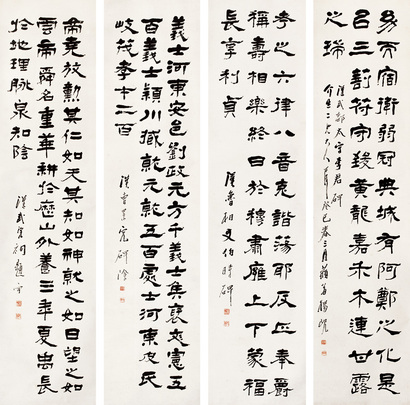 幼而宿衛弱冠典城有阿鄭之化是
以三剖符守致黃龍嘉禾木連甘露
之瑞
漢武都太守李君碑
癸巳春三月
考之六律八音克諧蕩耶反正奉爵
稱壽相樂終日於穆肅雝上下蒙福
長享利貞
漢魯相史伯時碑
義士河東安邑劉政元方千義士侯襄文憲五
百義士潁川臧就元五百處士河東皮氏
岐茂孝才二百
漢曹景完碑陰
帝堯放勳其仁如天其知如神就之如日望之如
雲帝舜名重華耕於歷山外養三年夏禹長
於地理脈泉知陰
漢武梁祠題字